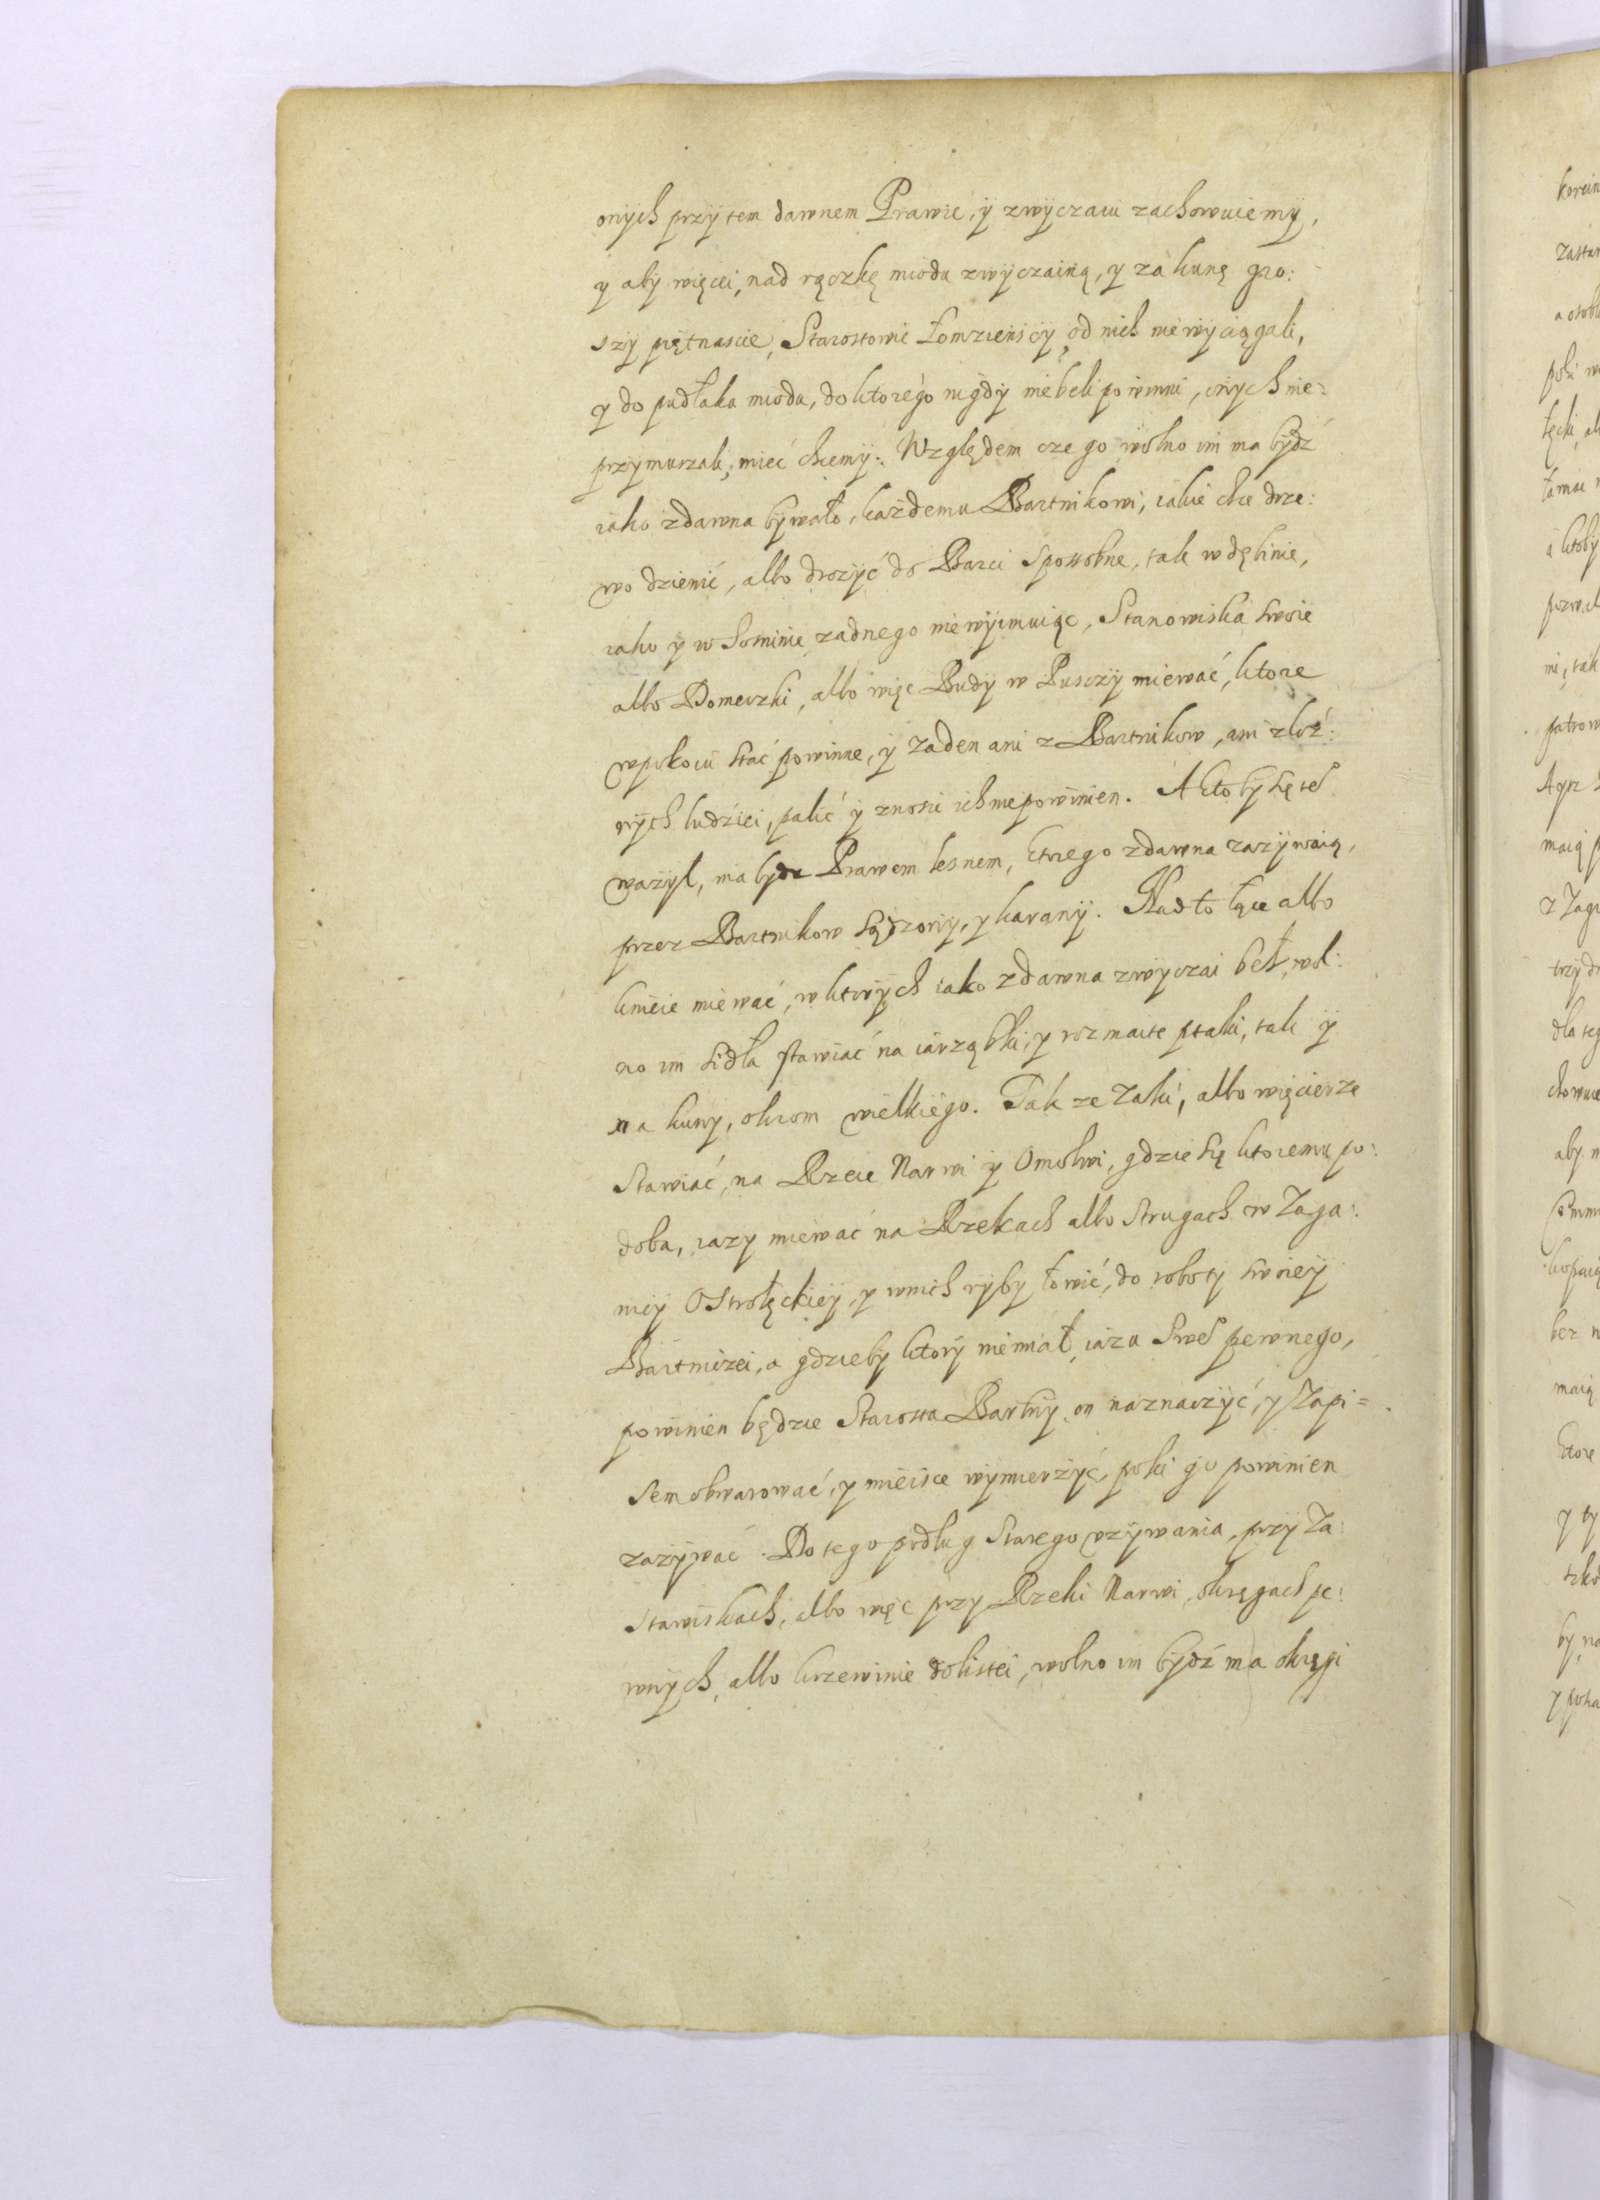 onych przy tem dawnem Prawie, y zwyczaiu zachowuiemy,
y aby więcei, nad rączkę miodu zwyczainą, y za kunę gro:
szy piętnascie, Starostowie Łomzienscy od nich niewyciągali,
y do pudłaka miodu, do ktorego nigdy niebeli powinni, onych nie:
przymuszali, miec chcemy. Względem czego wolno im ma bydz
iako zdawna bywało, każdemu Bartnikowi, iakie chce drze:
wo dzienić, albo drożyć do Barci sposobne, tak w dębinie,
iako y w Sosninie zadnego niewyimuiąc, Stanowiska swoie
albo Domeczki, albo więc Budy w Puszczy miewać, ktore
wpokoiu stać powinne, y żaden ani z Bartnikow, ani z ktor:
ych ludziei, palić y znosic ich niepowinien. A ktoby się teo
ważył, ma bydz Prawem lesnem, ktorego zdawna zażywaią,
przez Bartnikow sądzony, y karany. Nadto łące albo
kniėie miewać, w ktorych iako zdawna zwyczai beł, wol:
no im sidła stawiać na iarząbki, y rozmaite ptaki, tak y
na kuny, okrom wielkiego. Tak ze żaki, albo więcierze
Stawiać, na Rzece Narwi y Omolwi, gdzie się ktoremu po:
doba, iazy miewać na Rzekach albo Strugach w Zaga:
nicy Ostrołęckiey, y wnich ryby łowić, do roboty swoiey
Bartniczei, a gdzieby ktory niemiał iazu sweo pewnego,
powinien będzie Starosta Bartny on naznaczyć, y Zapi=
sem obwarować, y mieisce wymierzyć, poki go powinien
zażywać. Do tego podług Starego vżywania, przy Za:
Stawiskach, albo więc przy Rzeki Narwi, okręgach pe:
wnych, albo krzewinie dolistei, wolno im bydź ma okręgi